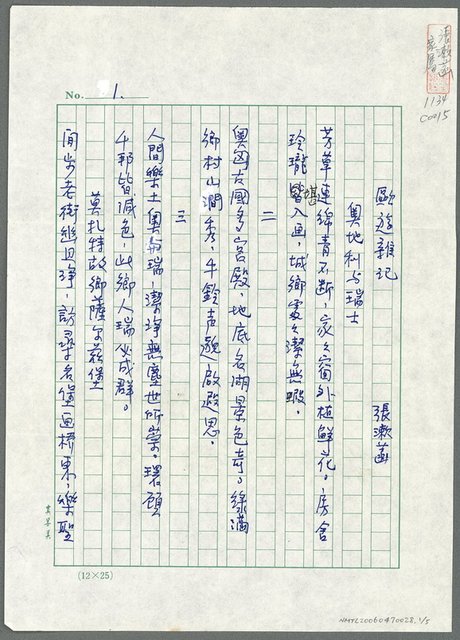 No. 1.
張漱菡
家屬
1134
C0015
歐遊雜記　張漱菡
奧地利与瑞士
芳草連綿青不断，家々窗外植鮮花。房舍
玲瓏堪入画，城鄉處々潔無瑕。
二
奧匈古國多宮殿，地底名湖景色奇。綠滿
鄉村山澗秀，牛鈴声啟遐思。
三
人間樂土奧和瑞，潔淨無塵世所崇。環顧
千邦皆減色，此鄉人瑞必成群。
莫札特故鄉薩尔茲堡
閒步老街幽且淨，訪尋名堡画橋東，樂聖
(12×25)
NMTL20060470028, 1/5